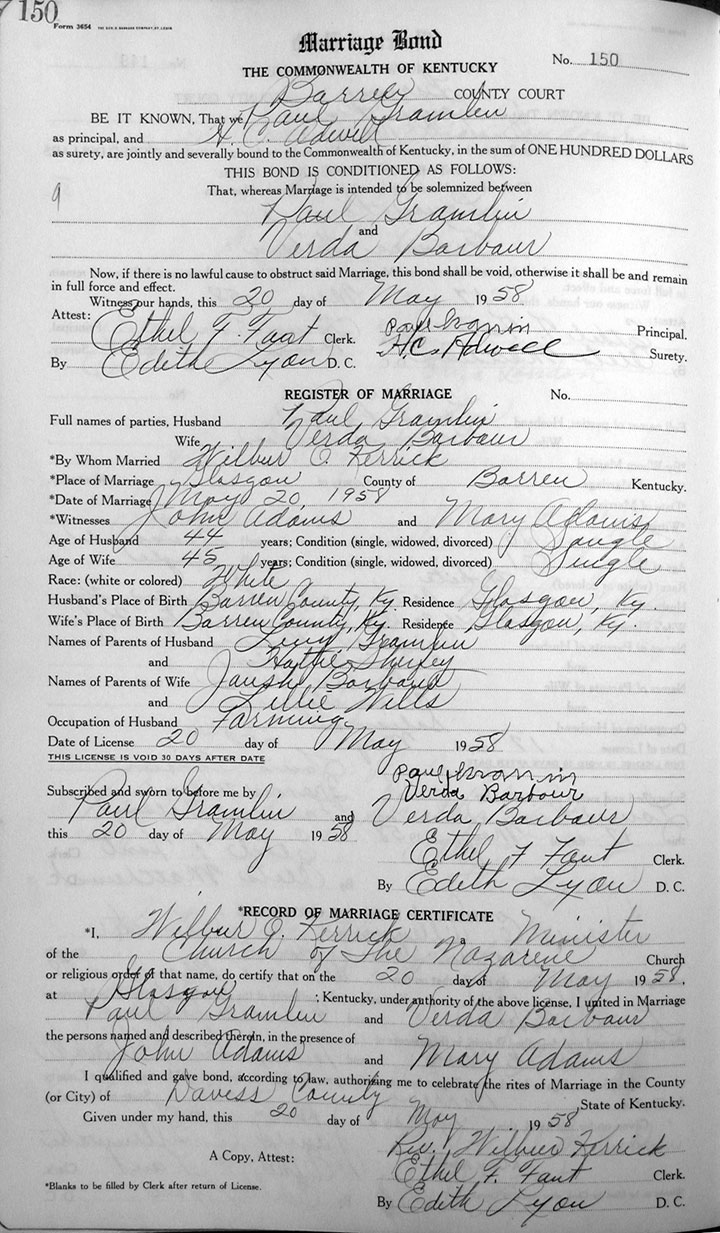 150
Form 3654
Marriage Bond
THE COMMONWEALTH OF KENTUCKY No. 150
Barren COUNTY COURT
BE IT KNOWN, That we Paul Gramlin
as principal, and H. C. Adwell
as surety, are jointly and severally bound to the Commonwealth of Kentucky, in the sum of ONE HUNDRED DOLLARS
THIS BOND IS CONDITIONED AS FOLLOWS:
9 That, whereas Marriage is intended to be solemnized between
Paul Gramlin
and
Verda Barbour
Now, if there is no lawful cause to obstruct said Marriage, this bond shall be void, otherwise it shall be and remain
in full force and effect.
Witness our hands, this 20 day of May 1958
Attest:
Ethel F. Fant Clerk. Paul Principal.
By Edith Lyon D. C. H C Adwell Surety.
REGISTER OF MARRIAGE No.
Full names of parties, Husband Paul Gramlin
Wife Verda Barbour
*By Whom Married Wilbur O. Kerrick
*Place of Marriage Glasgow County of Barren Kentucky.
*Date of Marriage May 20, 1958
*Witnesses John Adams and Mary Adams
Age of Husband 44 years; Condition (single, widowed, divorced) Single
Age of Wife 45 years; Condition (single, widowed, divorced) Single
Race: (white or colored) White
Husband's Place of Birth Barren County, Ky. Residence Glasgow, Ky.
Wife's Place of Birth Barren County, Ky. Residence Glasgow, Ky.
Names of Parents of Husband Gramlin
and Hattie Shirley
Names of Parents of Wife Barbour
and Lillie Wills
Occupation of Husband Farming
Date of License 20 day of May 1958
THIS LICENSE IS VOID 30 DAYS AFTER DATE
Paul
Subscribed and sworn to before me by Verda Barbour
Paul Gramlin and Verda Barbour
this 20 day of May 1958
Ethel F Fant Clerk.
By Edith Lyon D. C.
*RECORD OF MARRIAGE CERTIFICATE
*I, Wilbur O. Kerrick a Minister
of the Church of The Nazarene Church
or religious order of that name, do certify that on the 20 day of May 1958.
at Glasgow, Kentucky, under authority of the above license, I united in Marriage
Paul Gramlin and Verda Barbour
the persons named and described therein, in the presence of
John Adams and Mary Adams
I qualified and gave bond, according to law, authorizing me to celebrate the rites of Marriage in the County
(or City) of Daviess County, State of Kentucky.
Given under my hand, this 20 day of May, 1958
Rev. Wilbur Kerrick
A Copy, Attest: Ethel F. Fant Clerk.
*Blanks to be filled by Clerk after return of License.
By Edith Lyon D. C.